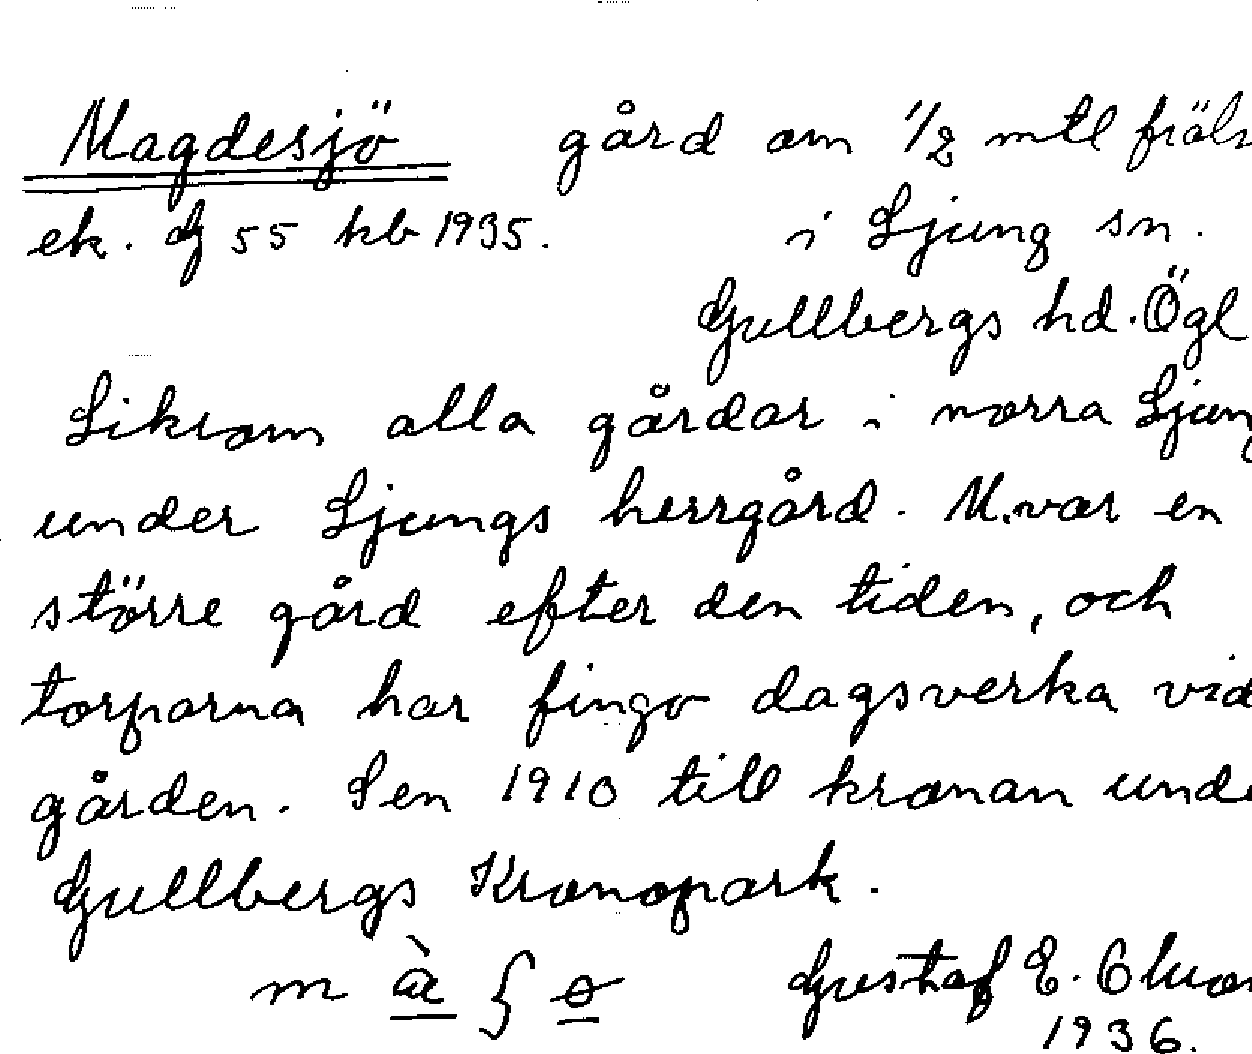 Magdesjö gård om 1/2 mtl fräls
ek. bg 55 hb 1935. i Ljung sn.
Gullbergs hd. Ögl
Liksom alla gårdar i norra Ljung
under Ljungs herrgård. M. var en
större gård efter den tiden, och
torparna har fingo dagsverka vid
gården. Sen 1910 till kronan unde
Gullbergs Kronopark.
m Gustaf E.
1936.